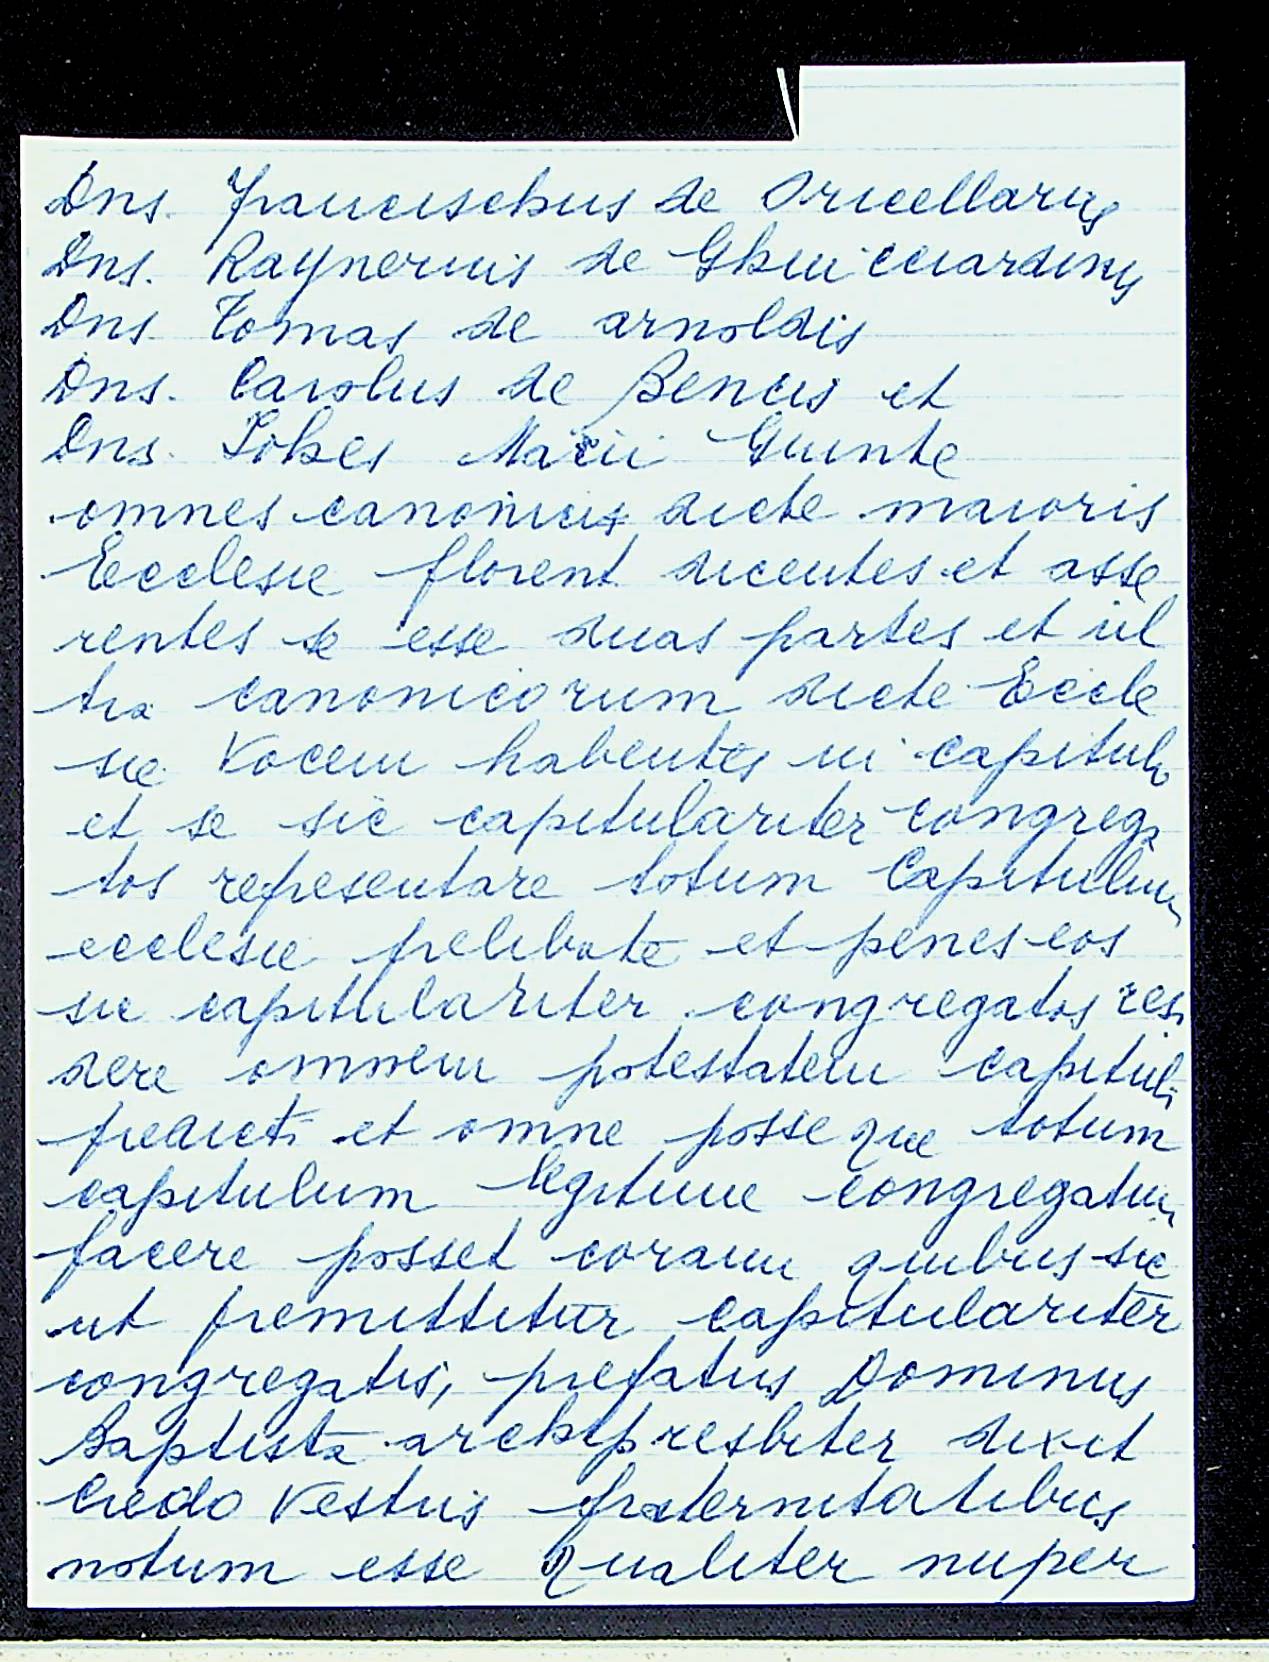 Dns. Francischus de Oricellariis
Dns. Raynerius de Ghuicciardinis
Dns. Tomas de arnoldis
Dns. Carolus de Bencis et
Dns. Johes Guinte
omnes canonicis dicte maioris
Ecclesie florent dicentes et asse
rentes se esse duas partes et ul
tra canonicorum dicte Eccle
sie Vocem habentes in capitulo
et se sic capitulariter congrega
tos representare totum Capitulum
ecclesie prelibate et penes eos
sic capitulariter congregatos resi
dere omnem potestatem capituli
predicti et omne posse que totum
capitulum legitime congregatum
facere posset coram quibus sic
ut premittitur capitulariter
congregatis, prefatus Dominus
Baptista archipresbiter dixit
Credo Vestris fraternitatibus
notum esse Qualiter nuper